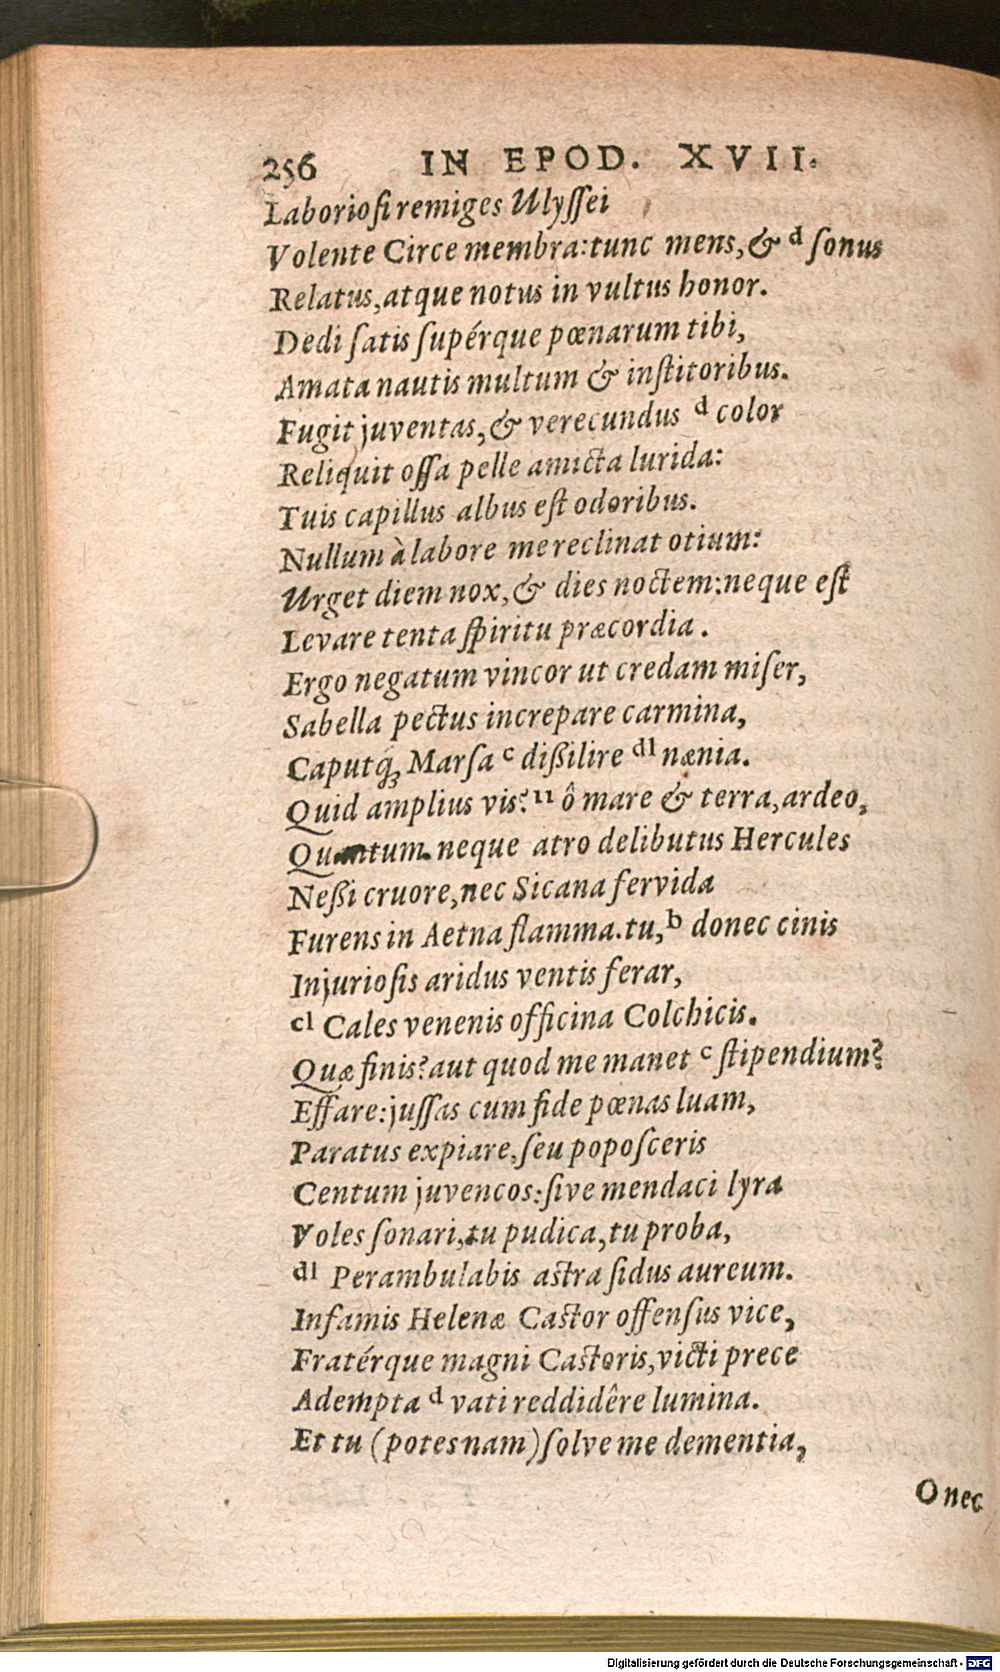 256 IN EPOD. XVII.
Laboriosi remiges Ulyssei
Volente Circe membra: tunc mens, & d sonus
Relatus, atque notus in vultus honor.
Dedi satis supérque pœnarum tibi,
Amata nautis multum & institoribus.
Fugit juventas, & verecundus d color
Reliquit ossa pelle amicta lurida:
Tuis capillus albus est odoribus.
Nullum à labore me reclinat otium:
Urget diem nox, & dies noctem: neque est
Levare tenta spiritu præcordia.
Ergo negatum vincor ut credam miser,
Sabella pectus increpare carmina,
Caputq́; Marsa c dißilire dl nænia.
Quid amplius vis? 11 ô mare & terra, ardeo,
Quantum neque atro delibutus Hercules
Neßi cruore, nec Sicana fervida
Furens in Aetna flamma. tu, b donec cinis
Injuriosis aridus ventis ferar,
cl Cales venenis officina Colchicis.
Quæ finis? aut quod me manet c stipendium?
Effare: jussas cum fide pœnas luam,
Paratus expiare, seu poposceris
Centum juvencos: sive mendaci lyra
Voles sonari, tu pudica, tu proba,
dl Perambulabis astra sidus aureum.
Infamis Helenæ Castor offensus vice,
Fratérque magni Castoris, victi prece
Adempta d vati reddidêre lumina.
Et tu (potes nam) solve me dementia,
O nec
Digitalisierung gefördert durch die Deutsche Forschungsgemeinschaft - DFG